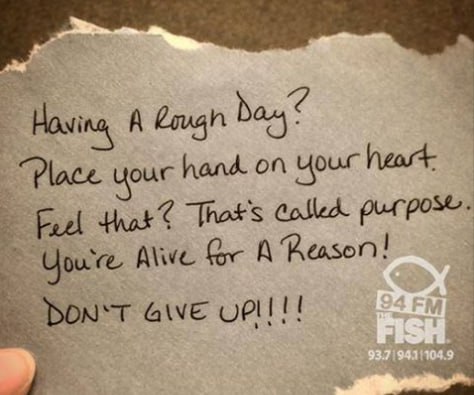 Having A Rough Day?
Place your hand on your heart.
Feel that? That's called purpose.
You're Alive for A Reason!
DON'T GIVE UP!!!!
94 FM
THE
FISH
93.7|94.1|104.9